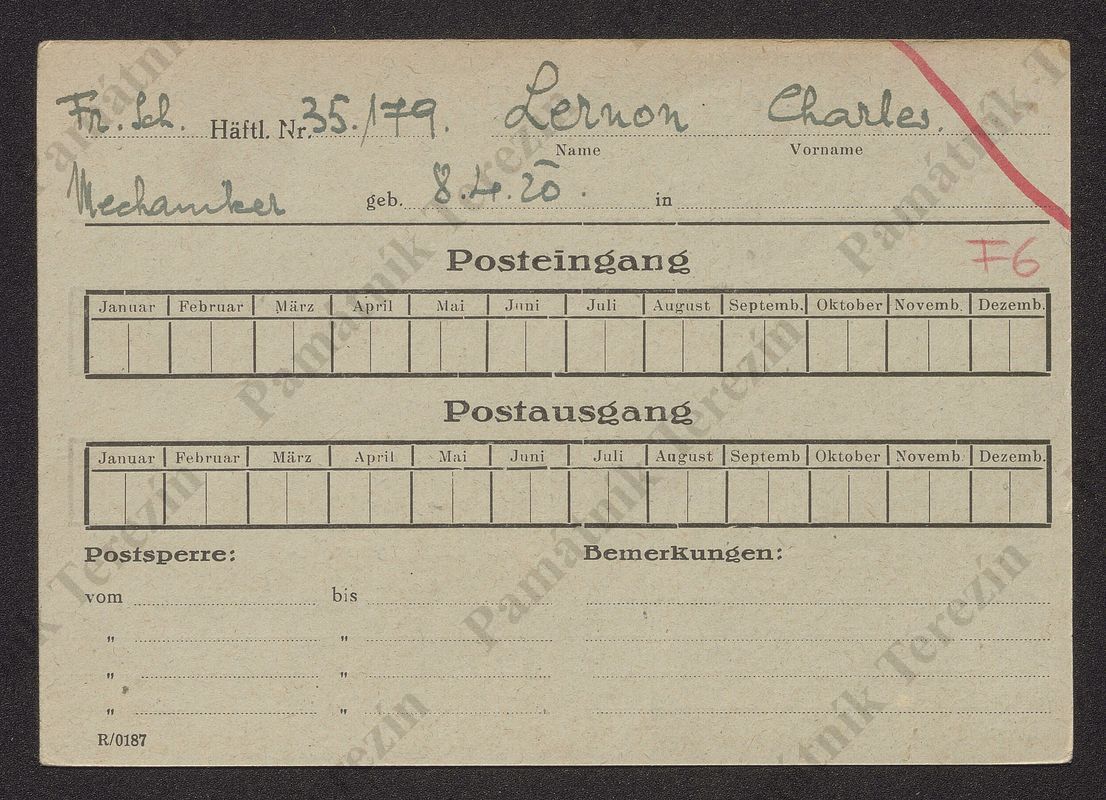 Fr. Sch. Häftl. Nr. 35./179. Lernon Charles.
Name Vorname
Mechaniker geb. 8.4.20. in
Posteingang F6
Januar Februar März April Mai Juni Juli August Septemb. Oktober Novemb. Dezemb.
Postausgang
Januar Februar März April Mai Juni Juli August Septemb Oktober Novemb. Dezemb.
Postsperre: Bemerkungen:
vom bis
" "
" "
" "
R/0187
Památník Terezín